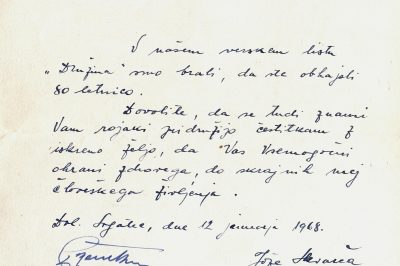 V našem verskem listu
„Družina" smo brali, da ste obhajali
80 letnico.
Dovolite, da se tudi znanci
Vam rojaki pridružijo čestitkam z
iskreno željo, da Vas Vsemogočni
ohrani zdravega, do skrajnih mej
človeškega življenja.
Dol. Logatec, dne 12 januarja 1968.
Jože